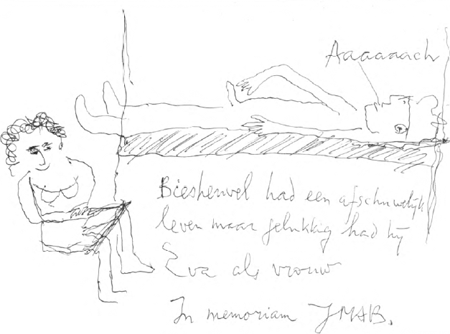 Aaaaaach
Biesheuvel had een afschuwelijk
leven maar gelukkig had hij
Eva als vrouw
In memoriam JMAB.